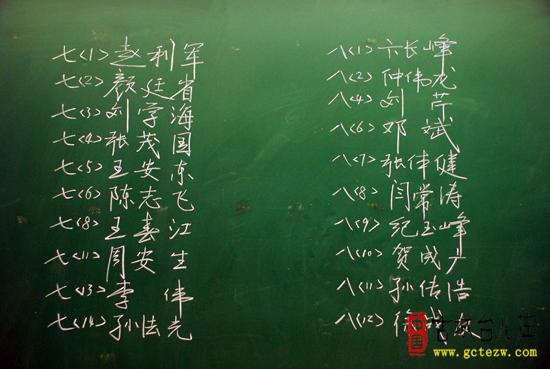 七<1> 赵利军
七<2> 颜廷省
七<3> 刘学海
七<4> 张茂国
七<5> 王安东
七<6> 陈志飞
七<8> 王春江
七<11> 周安生
七<13> 李伟
七<14> 孙法克
八<1> 亓长峰
八<2> 仲伟龙
八<4> 刘芹
八<6> 邓斌
八<7> 张伟健
八<8> 闫常涛
八<9> 纪玉峰
八<10> 贺成广
八<11> 孙传浩
八<12> 徐
中国
www.gctezw.com